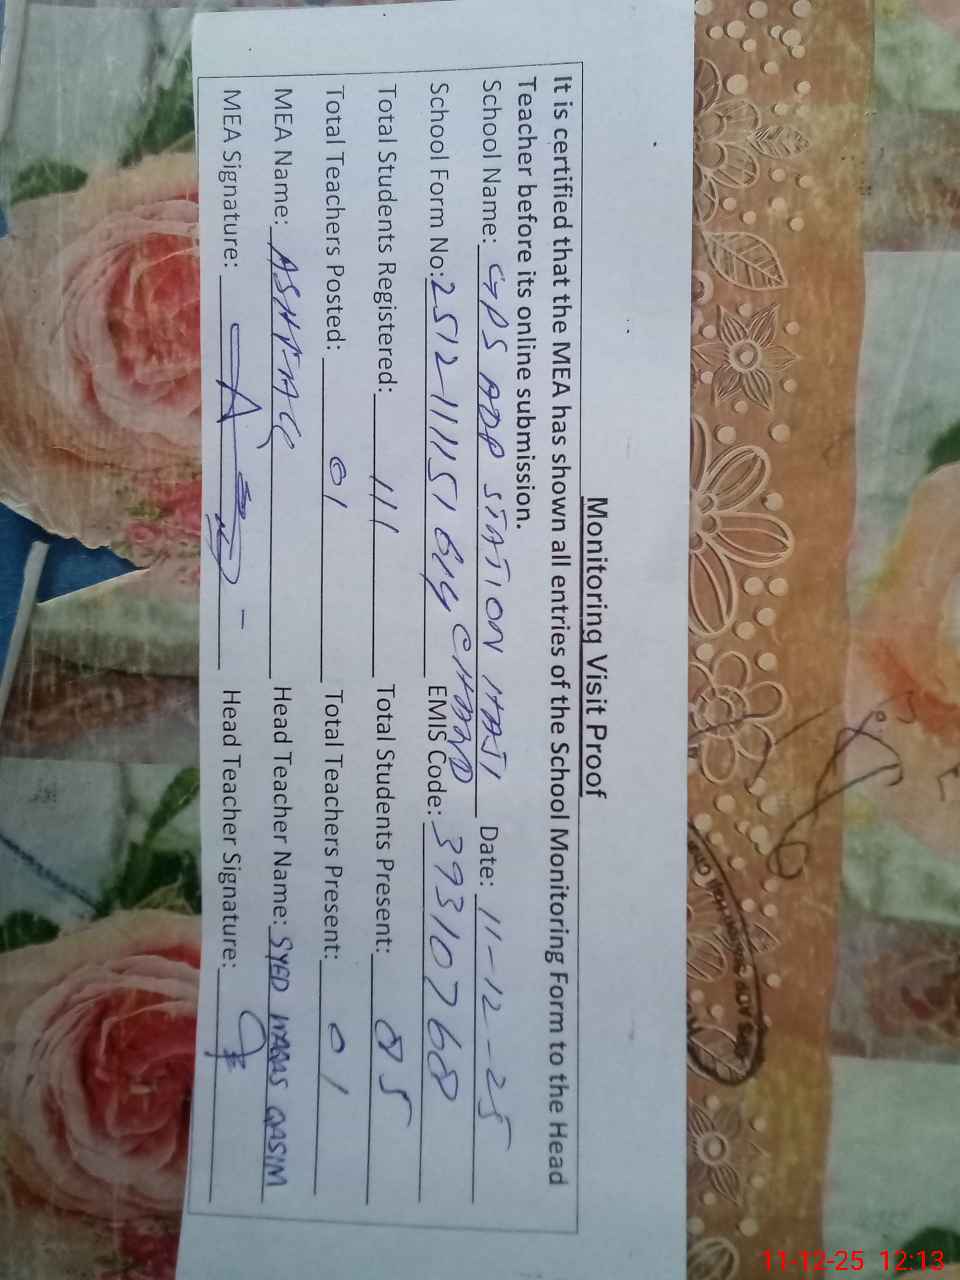 Monitoring Visit Proof
It is certified that the MEA has shown all entries of the School Monitoring Form to the Head
Teacher before its online submission.
School Name: GPS ADP STATION HAJI CHAND Date: 11-12-25
School Form No: EMIS Code: 39310768
Total Students Registered: 111 Total Students Present: 85
Total Teachers Posted: 01 Total Teachers Present: 01
MEA Name: ASHFAQ Head Teacher Name: SYED QASIM
MEA Signature: Head Teacher Signature:
11-12-25 12:13